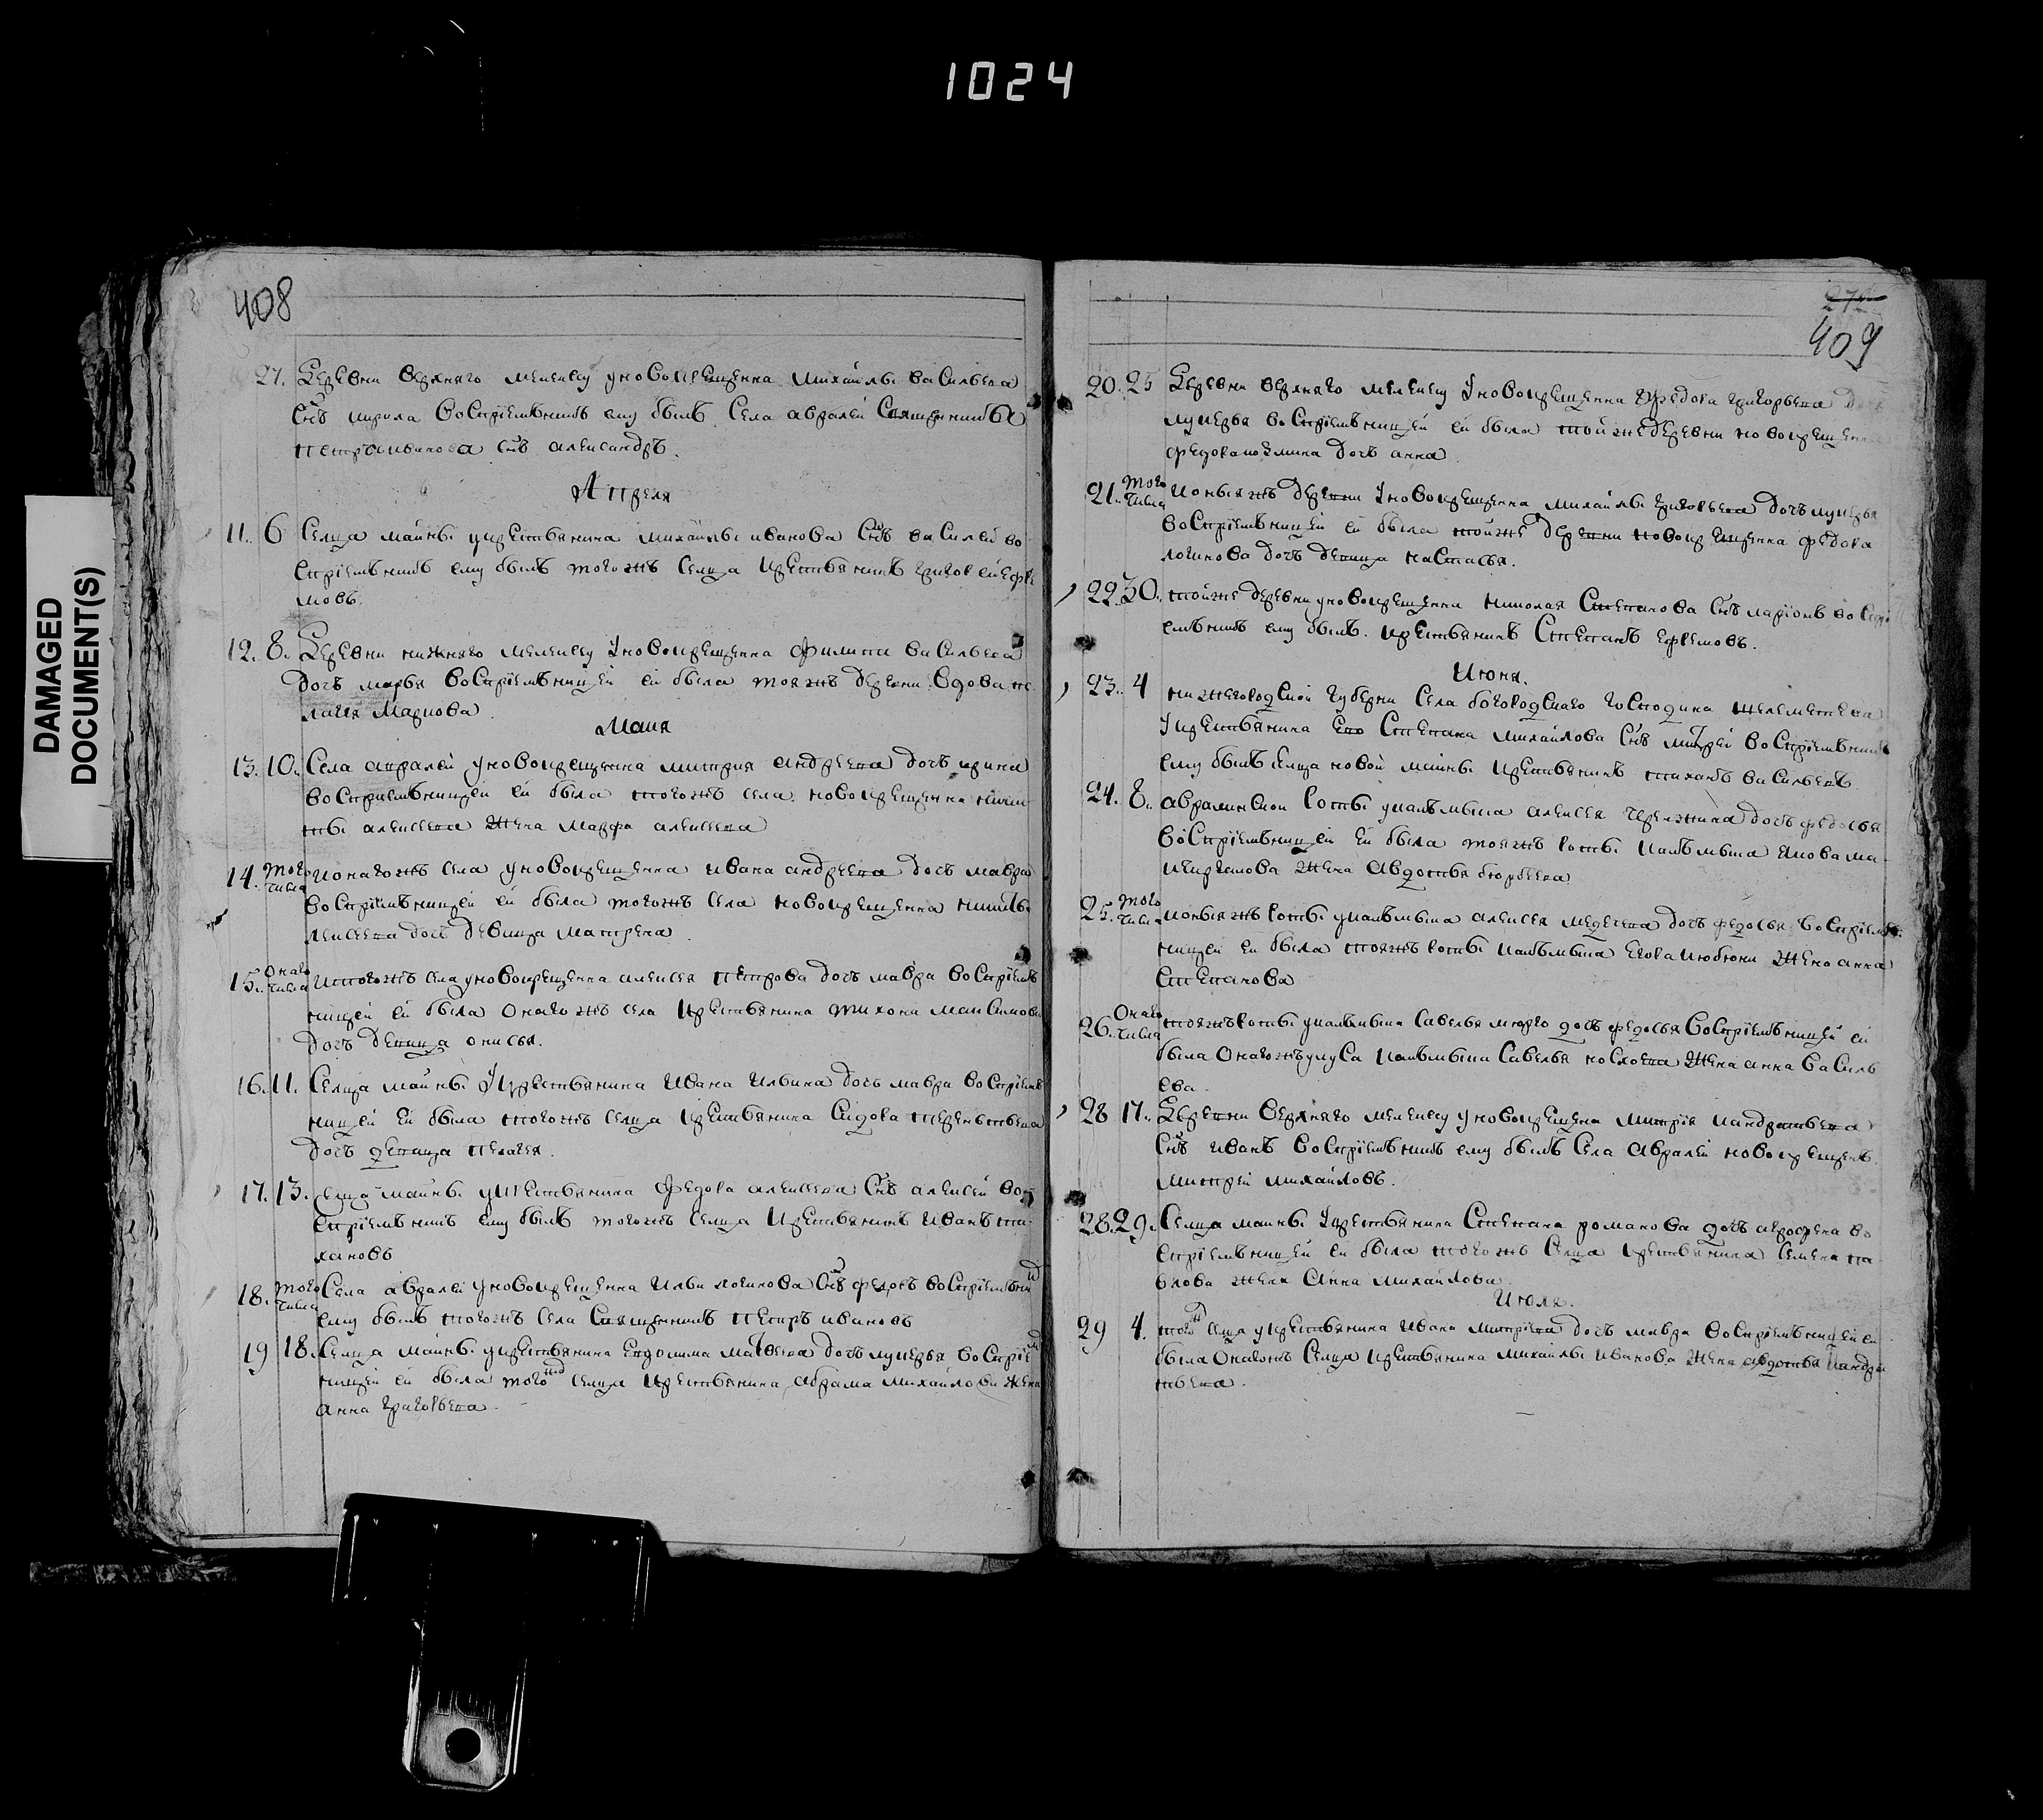 1024
DAMAGED
DOCUMENT(S)
408
27. Деревни верхняго мелекесу у новокрещенна михаилы васильева
снъ кирила восприемникъ ему былъ села авралей священника
петра иванова снъ александръ.
Апреля
11. 6 Селца майны у крестьянина михаилы иванова снъ василей во
сприемникъ ему былъ тогожъ селца крестьянинъ григорей ефре
мовъ.
12. 8. Деревни нижняго мелекесу у новокрещенна филипа васильева
дочь марья восприемницей ей была тояжъ деревни вдова пе
лагея Маркова
Маия
13. 10. Села авралей у новокрещенна митрия андреева дочь ирина
восприемницей ей была тогожъ села новокрещенна ники
ты алексеева жена марфа алексеева
14. того числа ионагожъ села у новокрещенна ивана андреева дочь мавра
восприемницей ей была тогожъ села новокрещенна никиты
лексеева дочь девица матрена
15. онаго числа итогожъ села у новокрещенна алексея петрова дочь мавра восприем
ницей ей была онагожъ села крестьянина тихона максимова
дочь девица онисья.
16. 11. Селца майны у крестьянина ивана ильина дочь мавра восприем
ницей ей была тогожъ селца крестьянина сидора терентьева
дочь девица пелагея.
17. 13. Селца майны у крестьянина федора алексеева снъ алексей во
сприемникъ ему былъ тогожъ селца крестьянинъ иванъ ти
хановъ
18. того числа Села авралей у новокрещенна ильи логинова снъ федоръ восприемни
ему былъ тогожъ села священникъ петръ ивановъ
19 18. Селца майны у крестьянина евдокима матвеева дочь лукерья восприе
ницей ей была того селца крестьянина абрама михайлова жена
анна григорьева
409
20. 25 Деревни верхняго мелекесу у новокрещенна федора григорьева
лукерья восприемницей ей была тойжедеревни новокрещенна
федора дочь анна
21. того числа ионыяжъ деревни у новокрещенна михаилы григорьева дочь лукерья
восприемницей ей была тойже деревни новокрещенна федора
логинова дочь девица настасья.
22 30. тойже деревни у новокрещенна николая степанова снъ ларионъ воспри
емникъ ему былъ крестьянинъ степанъ ефремовъ.
Июня.
23. 4 нижегородской губерни села богородскаго господина шереметева
у крестьянина степана михайлова снъ митрей восприемникъ
ему былъ селца новой майны крестьянинъ тиханъ васильевъ
24. 8. авралинской роты у калмыка алексея дочь федосья
восприемницей ей была тояжъ роты калмыка
жена авдотья
25. того числа ионыяжъ роты у калмыка алексея дочь федосья восприем
ницей ей была тояжъ роты калмыка егора жена анна
степанова
26. Онаго числа тояжъ роты у калмыка савелья дочь федосья восприемницей ей
была онагожъ улуса калмыка савелья жена анна василь
ева.
28 17. Деревни верхняго мелекесу у новокрещенна митрия кандратьева
снъ иванъ восприемникъ ему былъ села авралей новокрещенъ
митрей михайловъ.
28. 29. Селца майны у крестьянина степана романова дочь афросена во
сприемницей ей была тогожъ селца крестьянина семена па
влова жена анна михайлова
Июля.
29 4. того селца у крестьянина ивана митриева дочь мавра восприемницей ей
была онагожъ селца крестьянина михаилы иванова жена авдотья кандра
тьева.